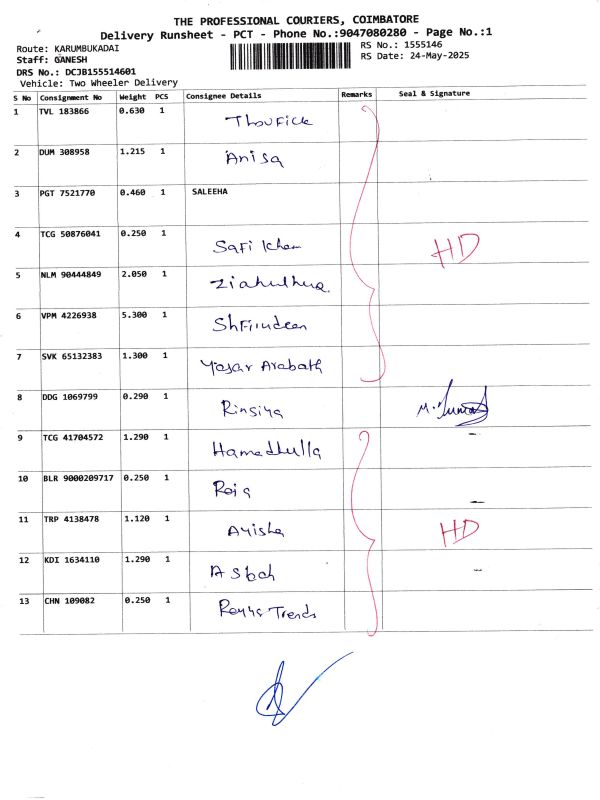 THE PROFESSIONAL COURIERS, COIMBATORE
Delivery Runsheet - PCT - Phone No.:9047080280 - Page No.:1
Route: KARUMBUKADAI
RS No.: 1555146
Staff: GANESH
RS Date: 24-May-2025
DRS No.: DCJB155514601
Vehicle: Two Wheeler Delivery
S No Consignment No Weight PCS Consignee Details Remarks Seal & Signature
1 TVL 183866 0.630 1 Thoufick
2 DUM 308958 1.215 1 Anisa
3 PGT 7521770 0.460 1 SALEEHA
4 TCG 50876041 0.250 1 Safi Khan HD
5 NLM 90444849 2.050 1
6 VPM 4226938 5.300 1
7 SVK 65132383 1.300 1 Yasar Arabath
8 DDG 1069799 0.290 1 Rinsiya
9 TCG 41704572 1.290 1 Hameedhulla
10 BLR 9000209717 0.250 1
11 TRP 4138478 1.120 1 Ayisha HD
12 KDI 1634110 1.290 1
13 CHN 109082 0.250 1 Trends